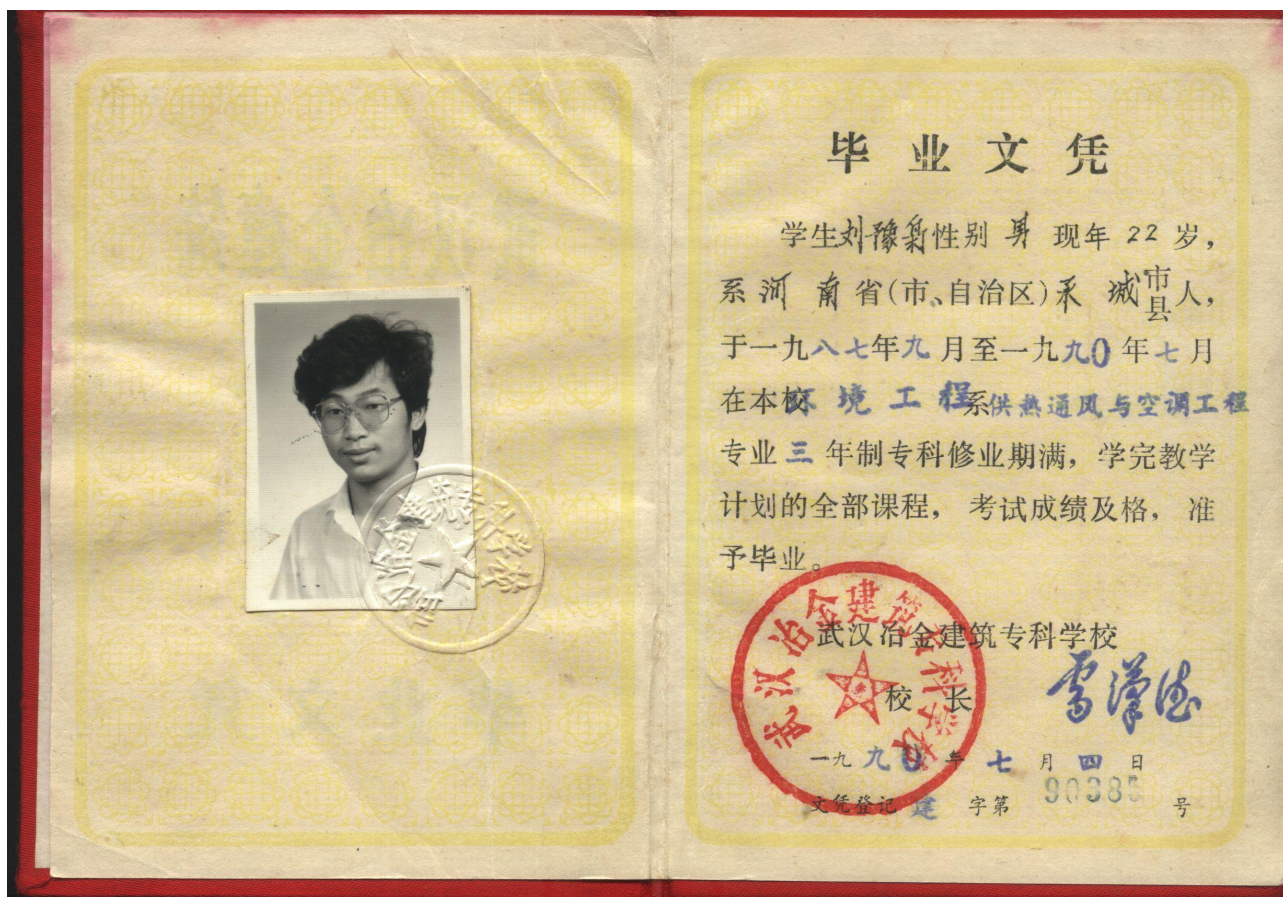 毕业文凭
学生刘豫新性别 男 现年 22 岁，
系河 南省(市、自治区) 城市县人，
于一九八七年九月至一九九0年七月
在本校环境工程系供热通风与空调工程
专业三年制专科修业期满，学完教学
计划的全部课程，考试成绩及格，准
予毕业。
武汉冶金建筑专科学校
武汉冶金建筑专科学校
校长
一九九0年七月四日
文凭登记建字第90385号
武汉冶金建筑专科学校